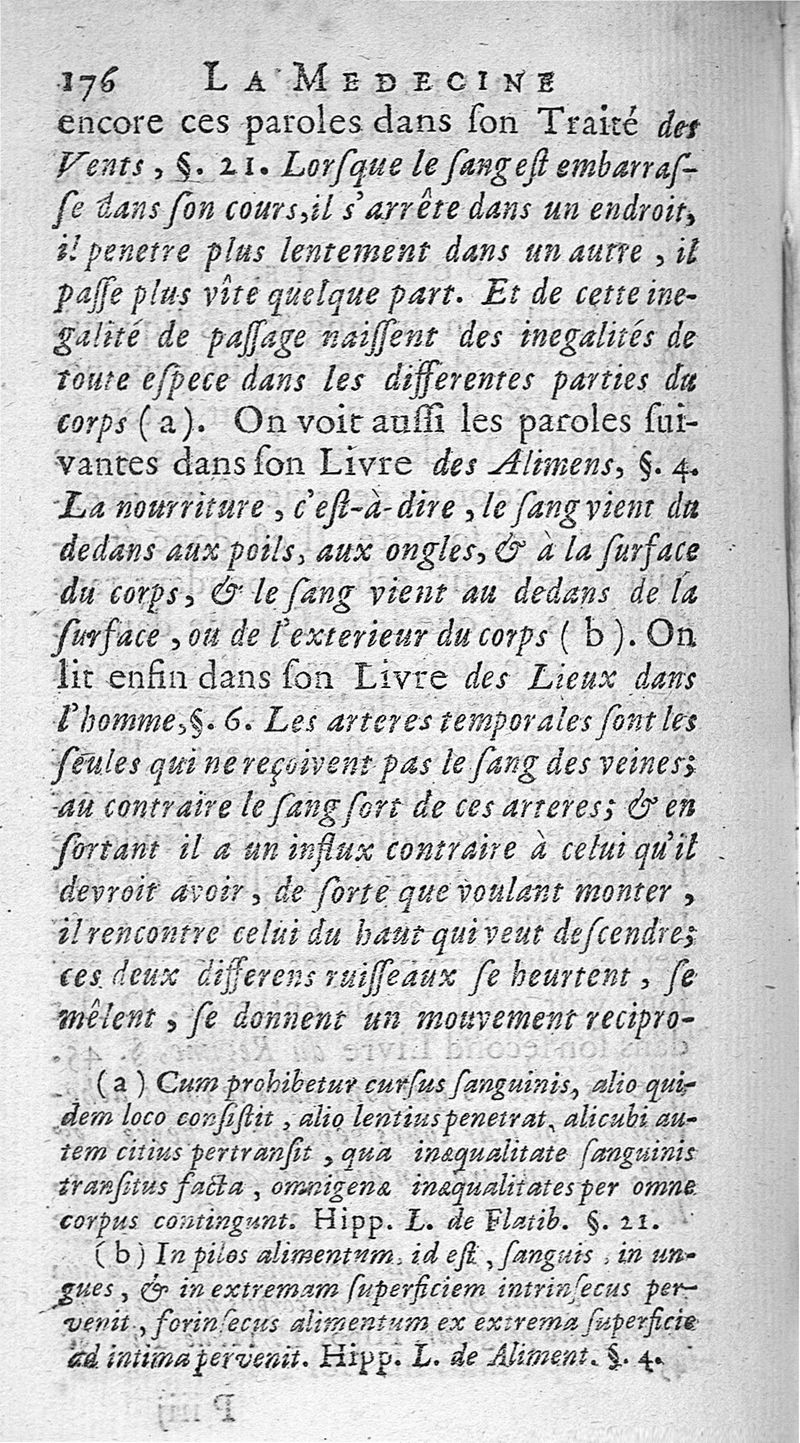 176 LA MEDECINE
encore ces paroles dans ſon Traité des
Vents, §. 21. Lorſque le ſang eſt embarraſ-
ſe dans ſon cours, il s'arrête dans un endroit,
il penetre plus lentement dans un autre, il
paſſe plus vîte quelque part. Et de cette ine-
galité de paſſage naiſſent des inegalités de
toute eſpece dans les differentes parties du
corps (a). On voit auſſi les paroles ſui-
vantes dans ſon Livre des Alimens, §. 4.
La nourriture, c'eſt-à-dire, le ſang vient du
dedans aux poils, aux ongles, & à la ſurface
du corps, & le ſang vient au dedans de la
ſurface, ou de l'exterieur du corps (b). On
lit enfin dans ſon Livre des Lieux dans
l'homme, §. 6. Les arteres temporales ſont les
ſeules qui ne reçoivent pas le ſang des veines;
au contraire le ſang ſort de ces arteres; & en
ſortant il a un influx contraire à celui qu'il
devroit avoir, de ſorte que voulant monter,
il rencontre celui du haut qui veut deſcendre;
ces deux differens ruiſſeaux ſe heurtent, ſe
mêlent, ſe donnent un mouvement recipro-
(a) Cum prohibetur curſus ſanguinis, alio qui-
dem loco conſiſtit, alio lentius penetrat, alicubi au-
tem citius pertranſit, qua inæqualitate ſanguinis
tranſitus facta, omnigenæ inæqualitates per omne
corpus contingunt. Hipp. L. de Flatib. §. 21.
(b) In pilos alimentum, id eſt, ſanguis, in un-
gues, & in extremam ſuperficiem intrinſecus per-
venit, forinſecus alimentum ex extrema ſuperficie
ad intima pervenit. Hipp. L. de Aliment. §. 4.